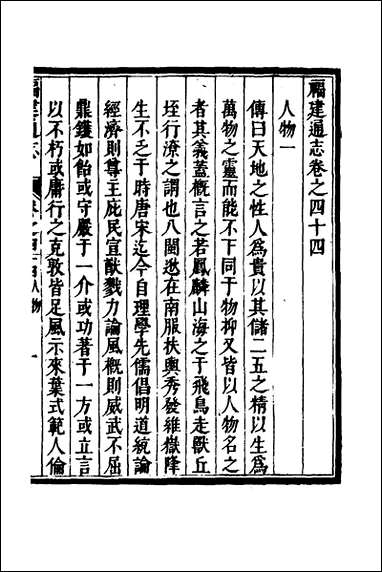 福建通志卷之四十四
人物一
傳曰天地之性人爲貴以其儲二五之精以生爲
萬物之靈而能不下同于物抑又皆以人物名之
者其義蓋概言之若鳳麟山海之于飛鳥走獸丘
垤行潦之謂也八閩逖在南服扶輿秀發維嶽降
生不乏于時唐宋迄今自理學先儒倡明道統論
經濟則尊王庇民宣猷戮力論風概則威武不屈
鼎鑊如飴或守嚴于一介或功著于一方或立言
以不朽或庸行之克敦皆足風示來葉式範人倫